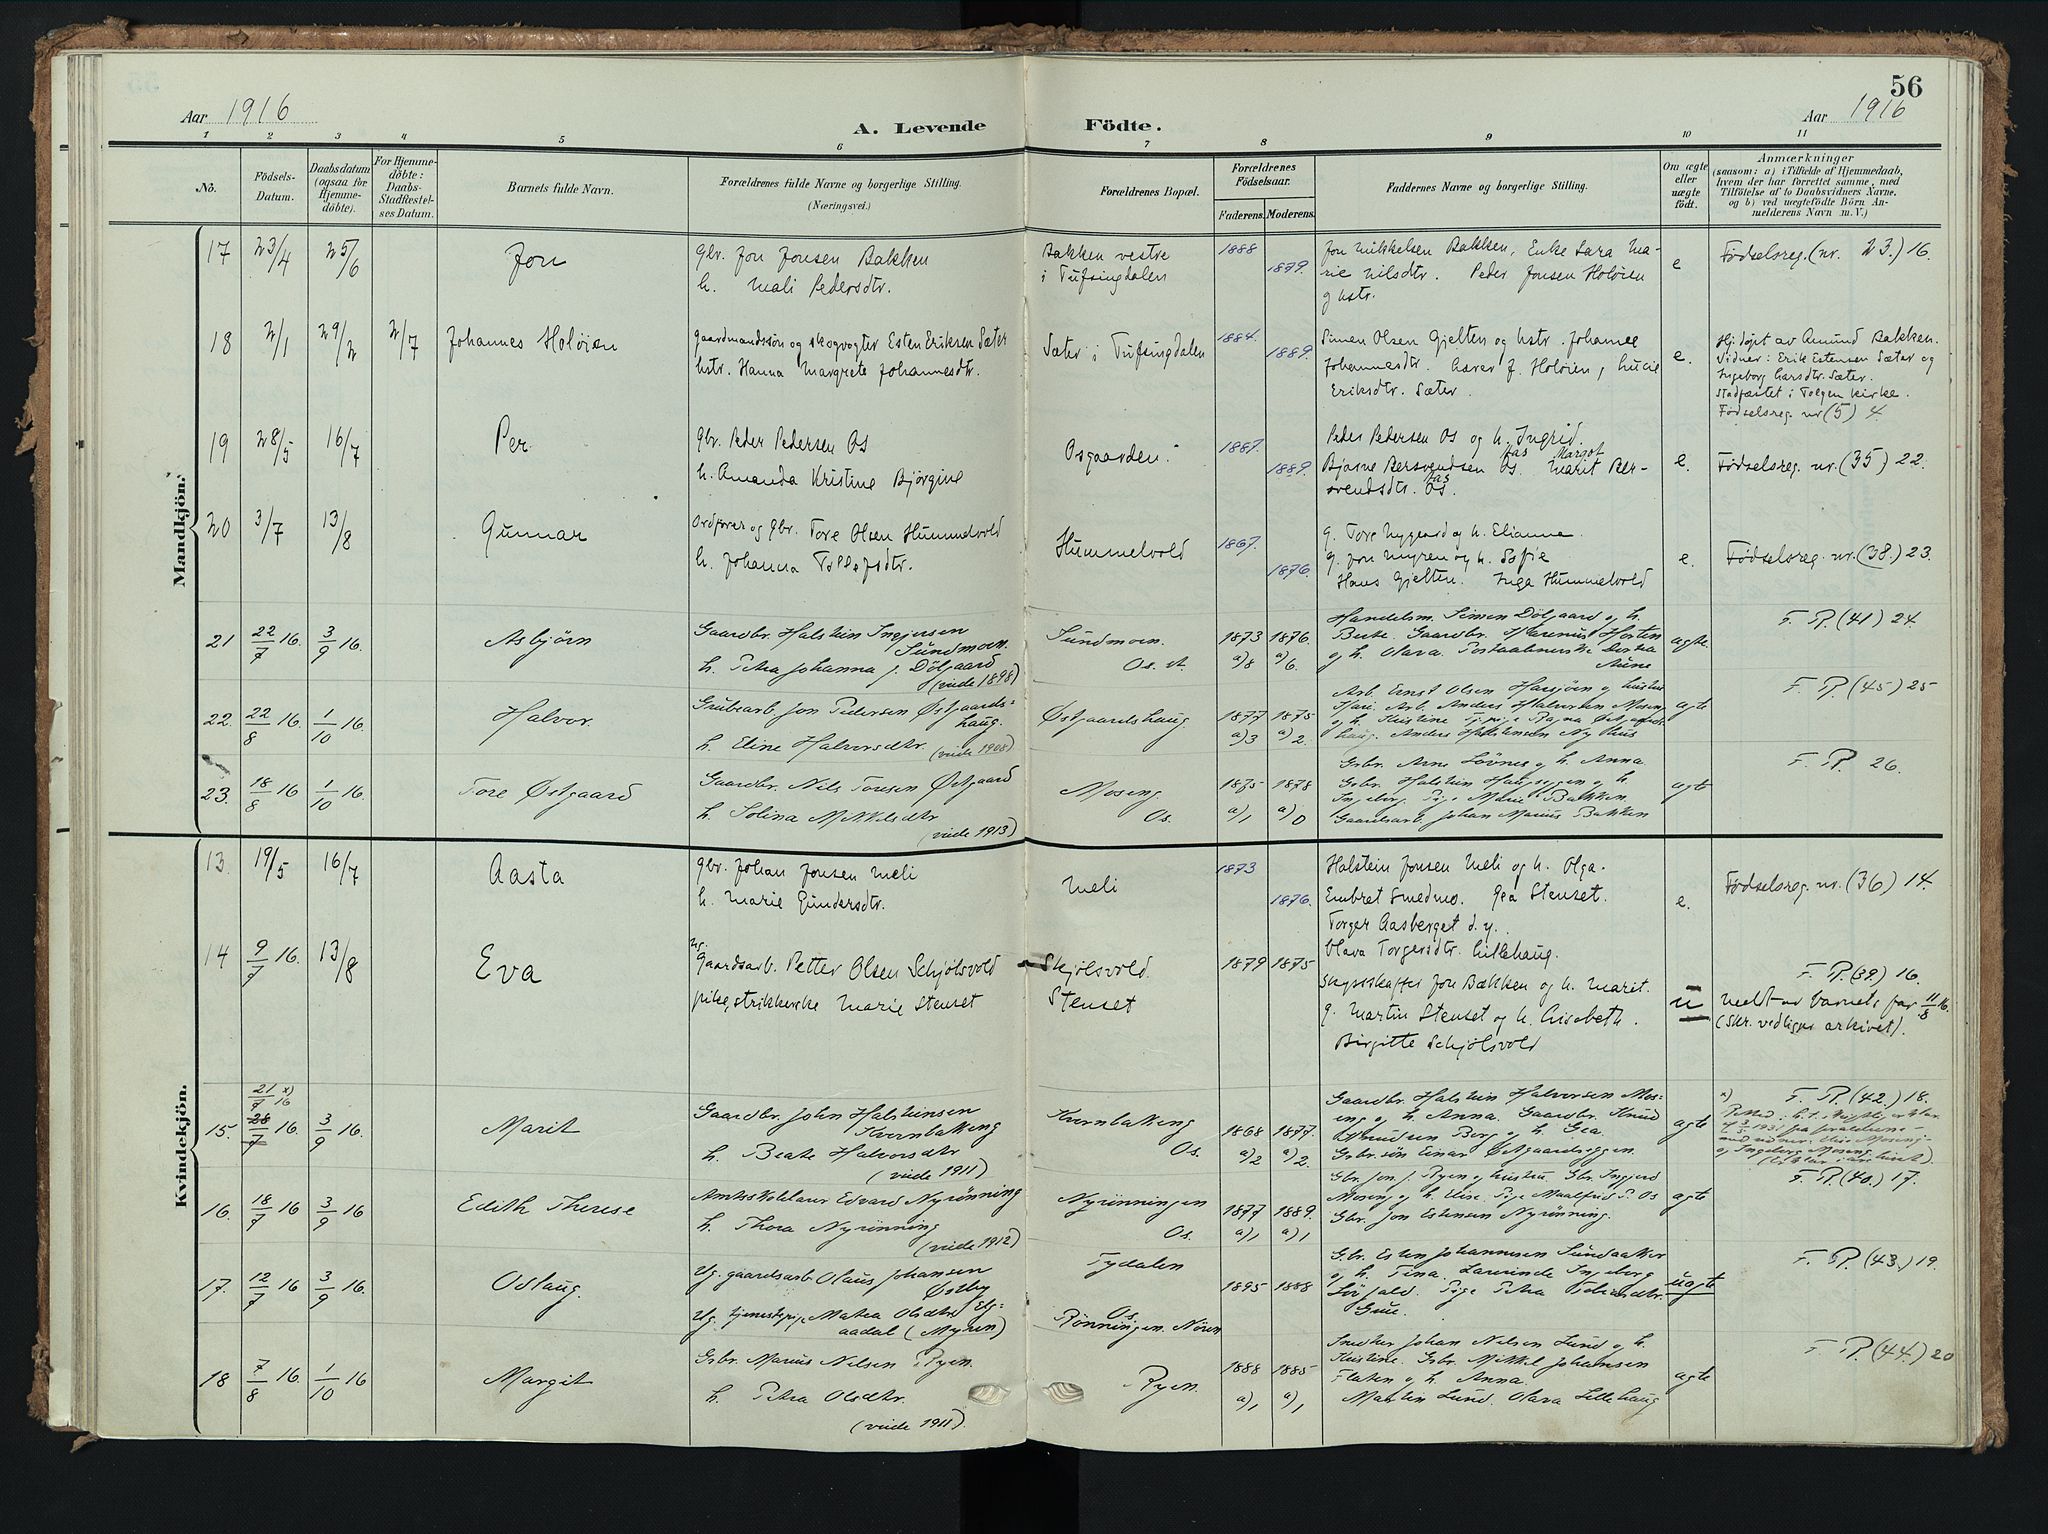 56
Aar 1916
A. Levende Födte.
Aar 1916
1 2 3 4 5 6 7 8 9 10 11
No.
Födsels-Datum.
Daabsdatum (ogsaa for Hjemmedöbte).
For Hjemmedöbte: Daabs-Stadfæstelses Datum.
Barnets fulde Navn.
Forældrenes fulde Navne og borgerlige Stilling.
(Næringsvei.)
Forældrenes Bopæl.
Forældrenes Födselsaar.
Faderens. Moderens.
Faddernes Navne og borgerlige Stilling.
Om ægte eller uægte födt.
Anmærkninger
(saasom: a) i Tilfælde af Hjemmedaab, hvem der har forrettet samme, med Tilföielse af to Daabsvidners Navne, og b) ved uægtefödte Börn Anmelderens Navn m. V.)
Mandkjön.
17 23/4 25/6 Jon
Gbr. Jon Jonsen Bakken
h. Mali Pedersdtr.
Bakken vestre
i Tufsingdalen
1888 1879.
Jon Mikkelsen Bakken, Enke Sara Ma-
rie Nilsdtr. Peder Jonsen Holøien
og hstr.
e
Fødselsreg. (nr. 23.) 16.
18 2/1 29/2 2/7 Johannes Holøien
Gaardmandssøn og skogvogter Esten Eriksen Sæter
hstr. Hanna Margrete Johannesdtr.
Sæter i Tufsingdalen
1884. 1889.
Simen Olsen Gjelten og hstr. Johanne
Johannesdtr. J. Holøien, Lucie
Eriksdtr. Sæter.
e.
Hj.døpt av Amund Bakken.
Vidner: Erik Estensen Sæter og
Ingeborg Larsdtr. Sæter.
Stadfæstet i Tolgen kirke.
Fødselsreg. nr (5) 4
19 28/5 16/7 Per
Gbr. Peder Pedersen Os
h. Amanda Kristine Bjørgine
Osgaarden.
1887. 1889.
Peder Pedersen Os og h. Ingrid.
Bjarne Bersvendsen Os. Marit Margot Ber-
svendsdtr. Os.
e.
Fødselsreg. nr. (35) 22.
20 3/7 13/8 Gunnar
Ordfører og Gbr. Tore Olsen Hummelvold
h. Johanna Tollefsdtr.
Hummelvold
1867. 1876.
G. Tore Nygaard og h. Elianna.
G. Jon Myren og h. Sofie
Hans Gjelten. Inga Hummelvold
e.
Fødselsreg. nr. (38.) 23.
21 22/7 16. 3/9 16. Asbjørn
Gaardbr. Halstein Ingersen
Sundmoen.
h. Petra Johanna J. Dølgaard
(vide 1898)
Sundmoen.
Os.
1873 1876.
a)8 a)6.
Handelsm. Simen Dølgaard og h.
Berte. Gaardbr. Marenus Horten
og h. Olava. Dorthea
Aune
ægte.
F. P. (41) 24.
22. 22/8 16 1/10 16. Halvor.
Grubearb. Jon Pedersen Østgaards-
haug.
h. Eline Halvorsdtr. (vide 1908)
Østgaardshaug.
1877 1875
a)3 a)2.
Arb. Ernst Olsen Harsjøen og hustru
Kari. Arb. Anders Halvorsen Moseng
og h. Kristine. Pige Ragna Østgaards-
haug. Anders Nyhus
ægte
F. P. (45) 25
23. 18/8 16 1/10 16. Tore Østgaard
Gaardbr. Nils Toresen Østgaard
h. Solina Mikkelsdtr
(vide 1913)
Moseng.
Os.
1875 1878
a)1 a)0
Gbr. Arne Løvnes og h. Anna
Gsbr. Halstein Haugseggen og h.
Ingeborg. Pige Marie Bakken
Gaardsarb. Johan Marius Bakken
ægte
F. P. 26.
Kvindekjön.
13. 19/5 16/7 Aasta
Gbr. Johan Jonsen Meli
h. Marie Gundersdtr.
Meli
1873 1876.
Halstein Jonsen Meli og h. Olga.
Embret Smedmo. Gea Stenset.
Torger Aasberget d.y.
Olava Torgersdtr. Lillehaug.
e.
Fødselsreg. nr. (36) 14.
14 9/7 16. 13/8 Eva
Ug. Gaardsarb. Petter Olsen Schjølsvold
pike, strikkerske Marie Stenset
Skjølsvold.
Stenset
1879 1875
Skysskaffer Jon Bækken og h. Marit.
G. Martin Stenset og h. Lisabeth.
Birgitte Schjølsvold
u
F. P. (39) 16.
Meldt av barnets far 11/8 16.
(Skr. vedligger arkivet).
15. 21/7 16 x) 28/7 16 3/9 16. Marit
Gaardbr. John Halsteinsen
Kvernbakken
h. Beate Halvorsdtr
(vide 1911)
Kvernbakken
Os.
1868 1877.
a)2 a)2.
Gaardbr. Halstein Halvorsen Mos-
eng og h. Anna. Gaardbr. Knud
Knudsen Borg og h. Gea.
Gsbr. søn Einar Østgaardseggen.
ægte
x) F. P. (42.) 18.
16. 18/7 16 3/9 16 Edith Therese
Amtsskolelærer Edvard Nyrønning
h. Thora Nyrønning
(vide 1912)
Nyrønningen
Os.
1877 1889.
a)1 a)1
Gbr. Jon J. Ryen og hustru. Gbr. Ingvard
Moseng og h. Eline. Pige Maalfrid P. Os
Gbr. Jon Estensen Nyrønning.
ægte
F. P. (40.) 17.
17. 12/7 16 3/9 16. Oslaug.
Ug. gaardsarb. Olaus Johansen
Østby
Ug. tjenestepige Mathea Olsdtr. Elg-
aadal (Myren)
Tydalen
Os.
Rønningen. Nøren
1895 1888
G.br. Esten Johannesen Sundbakken
og h. Tina. Laurinde Ingeborg
Pige Petra
uægte
F. P. (43.) 19.
18 7/8 16. 1/10 16 Margit
Gsbr. Marius Nilsen Ryen.
h. Petra Olsdtr.
(vide 1911).
Ryen.
1888 1885
a)1 a)1
Smeder Johan Nilsen Lund og h.
Kristine. Gsbr. Mikkel Johansen
Flaten og h. Anna.
Martin Lund. Olava Lillehaug
ægte
F. P. (44.) 20